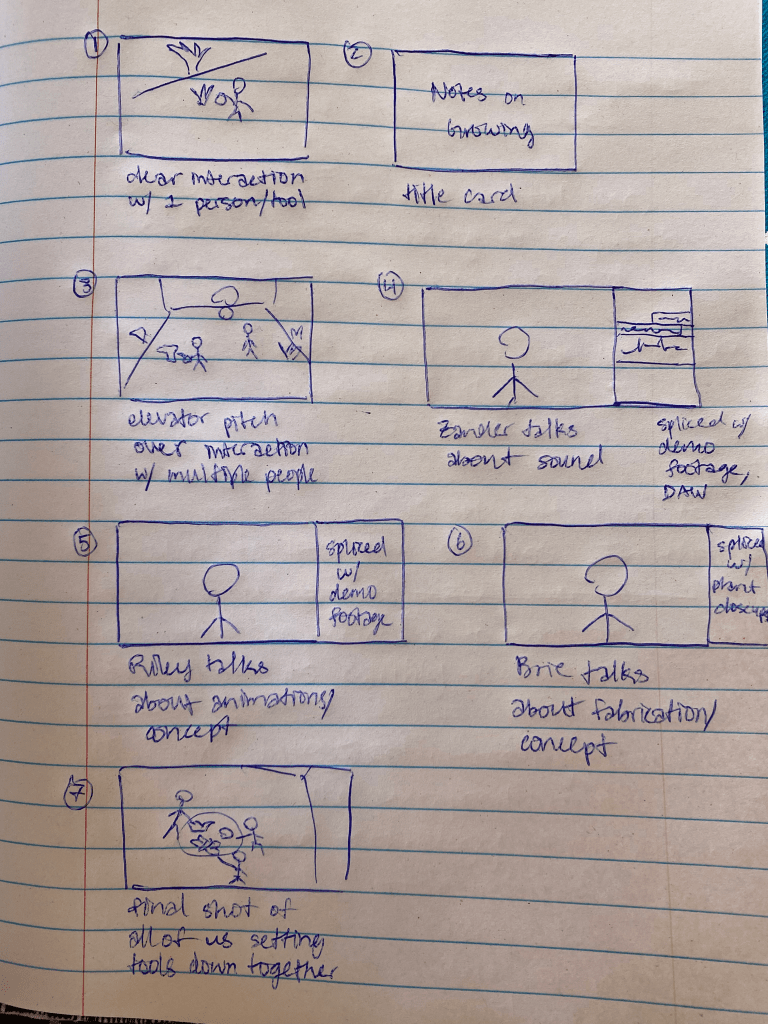 1
2
Notes on
Growing
clear interaction
w/ 1 person/tool
title card
3
4
elevator pitch
over interaction
w/ multiple people
Zander talks
about sound
spliced w/
demo
footage,
DAW
5
spliced
w/
demo
footage
6
spliced
w/
plant
closeups
Riley talks
about animations/
concept
Brie talks
about fabrication/
concept
7
final shot of
all of us setting
tools down together